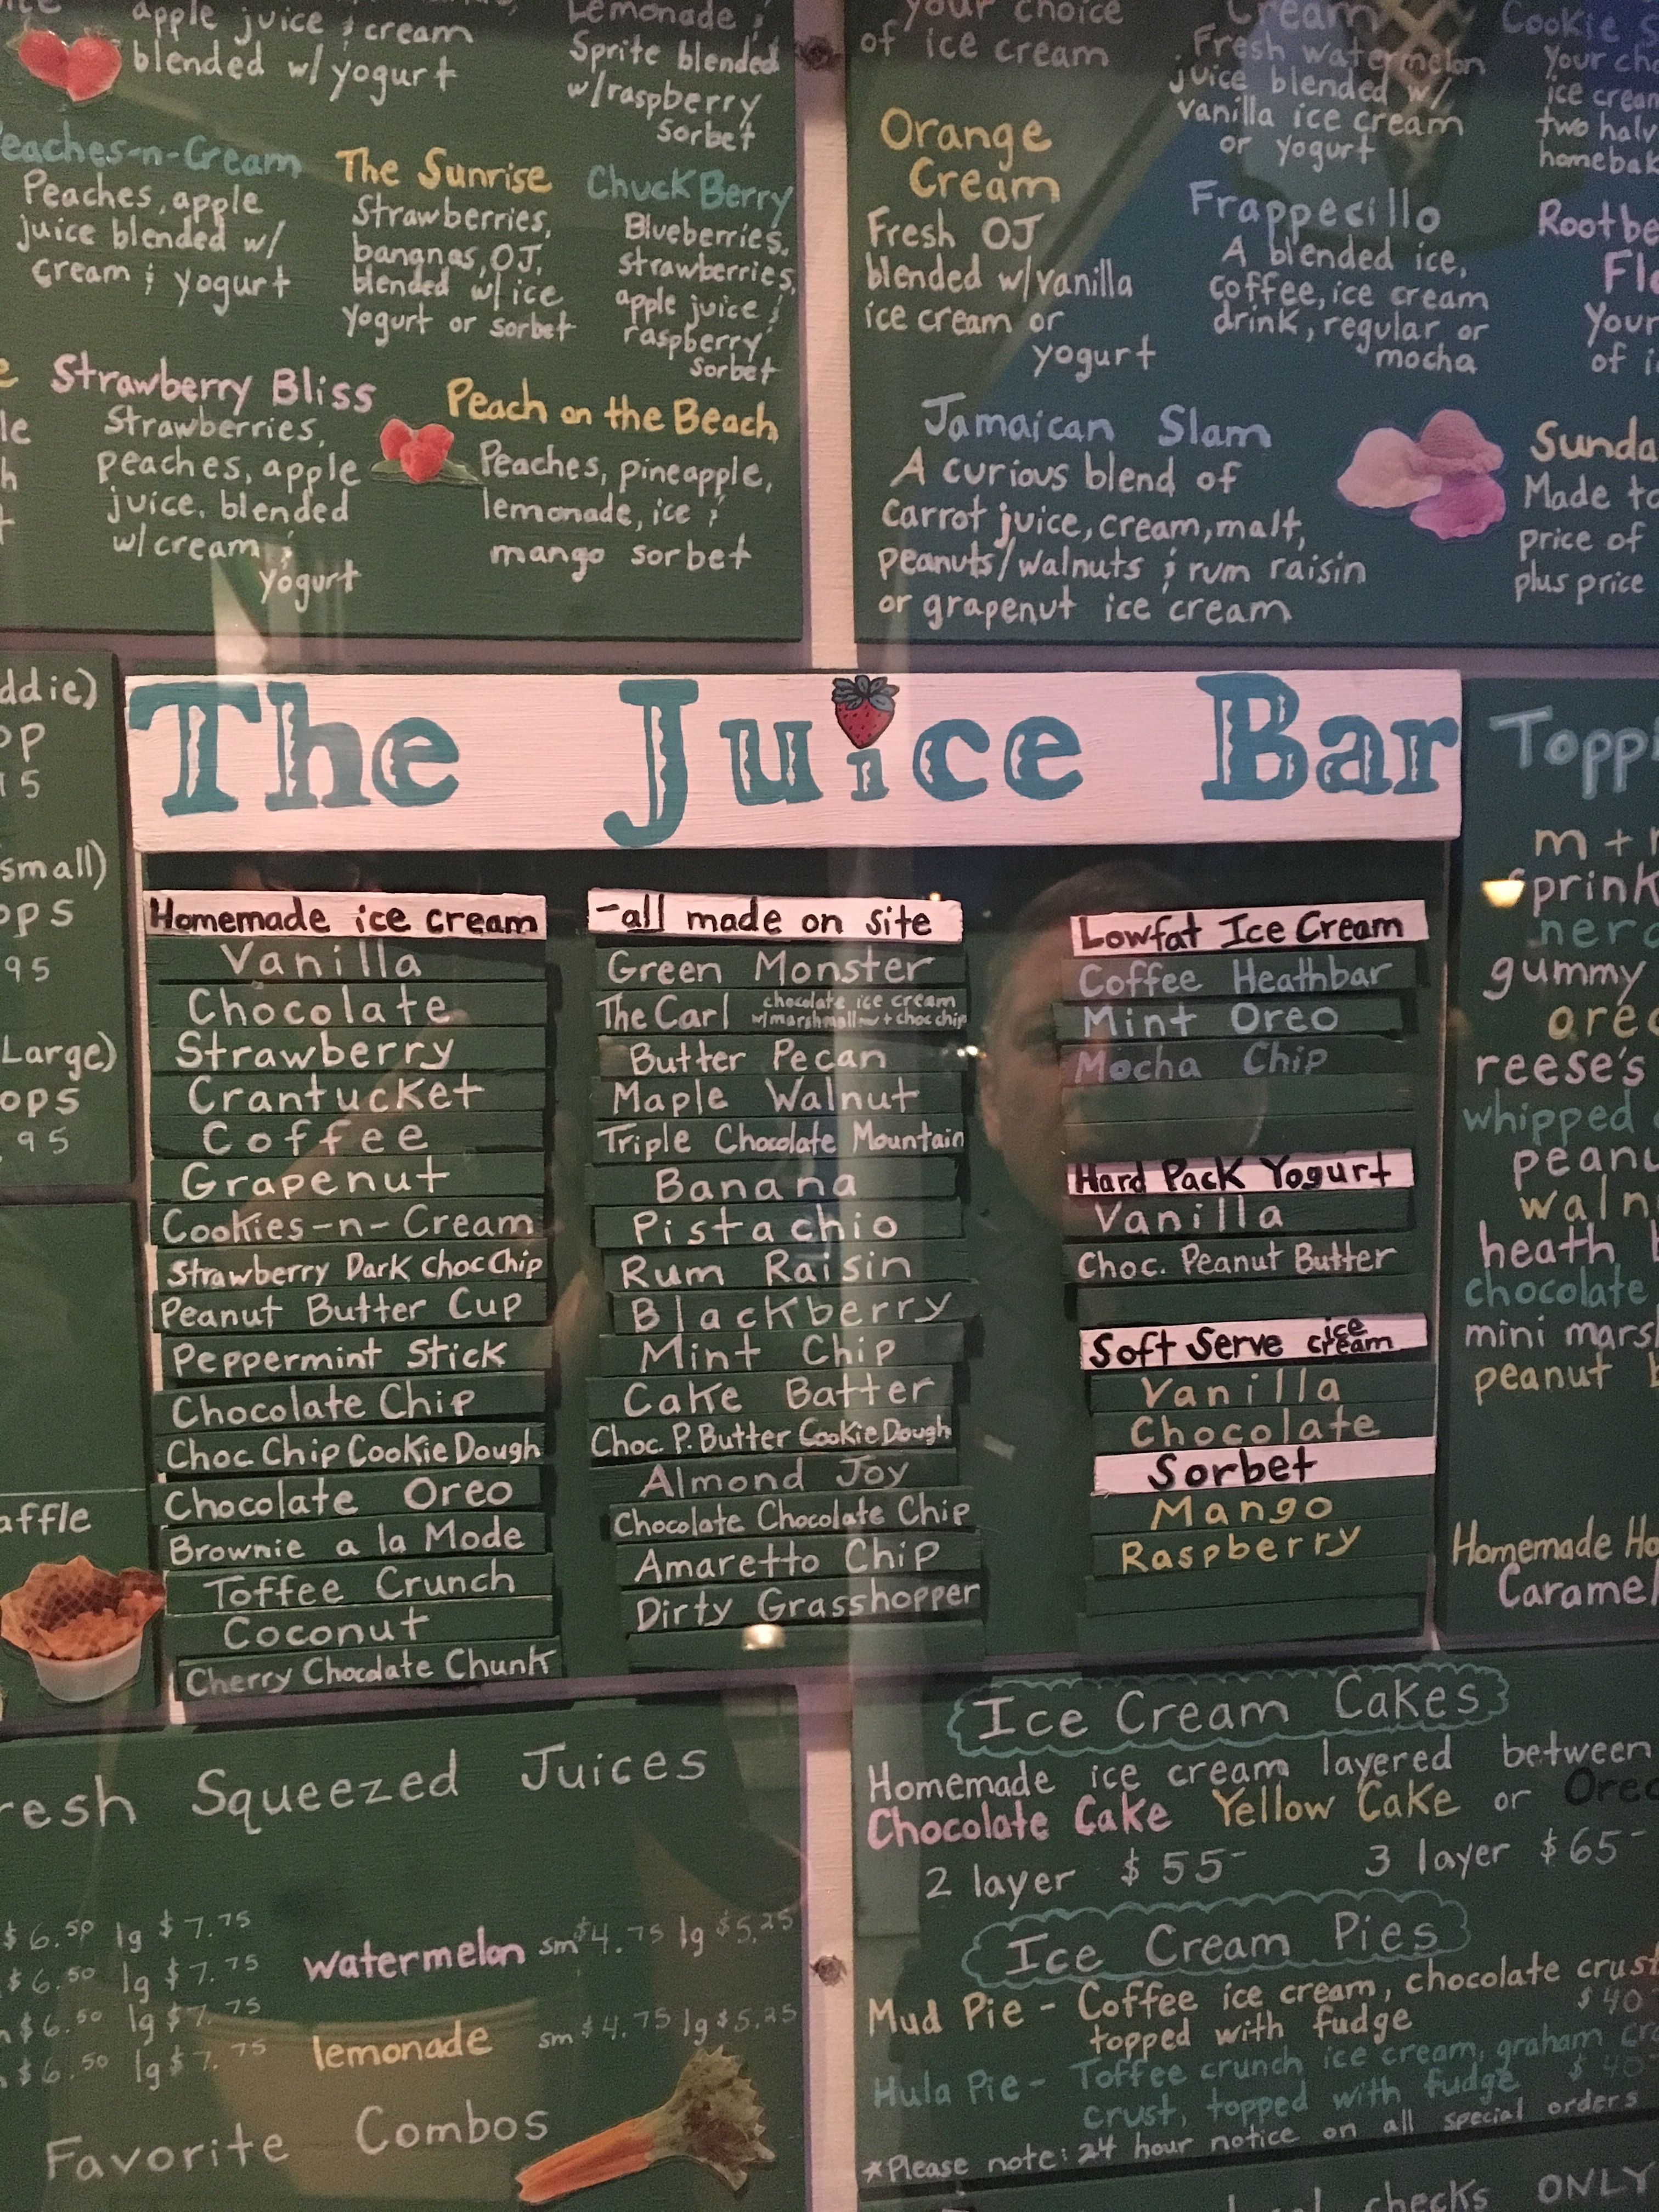 apple juice & cream
blended w/ yogurt
Lemonade,
Sprite blended
w/raspberry
sorbet
Peaches-n-Cream
Peaches, apple
juice blended w/
cream & yogurt
The Sunrise
Strawberries,
bananas, OJ,
blended w/ ice
yogurt or sorbet
Chuck Berry
Blueberries,
strawberries,
apple juice &
raspberry
sorbet
Strawberry Bliss
Strawberries,
peaches, apple
juice. blended
w/ cream &
yogurt
Peach on the Beach
Peaches, pineapple,
lemonade, ice &
mango sorbet
your choice
of ice cream
Cream
Fresh watermelon
juice blended w/
vanilla ice cream
or yogurt
Cookie
your
ice cream
two
Orange
Cream
Fresh OJ
blended w/vanilla
ice cream or
yogurt
Frappecillo
A blended ice,
coffee, ice cream
drink, regular or
mocha
Your
of
Jamaican Slam
A curious blend of
carrot juice, cream, malt,
peanuts/walnuts & rum raisin
or grapenut ice cream
Made to
price of
plus price
The Juice Bar
Homemade ice cream
Vanilla
Chocolate
Strawberry
Crantucket
Coffee
Grapenut
Cookies-n-Cream
Strawberry Dark Choc Chip
Peanut Butter Cup
Peppermint Stick
Chocolate Chip
Choc Chip Cookie Dough
Chocolate Oreo
Brownie a la Mode
Toffee Crunch
Coconut
Cherry Chocolate Chunk
-all made on site
Green Monster
The Carl chocolate ice cream
w/marshmallow + choc chip
Butter Pecan
Maple Walnut
Triple Chocolate Mountain
Banana
Pistachio
Rum Raisin
Blackberry
Mint Chip
Cake Batter
Choc P. Butter Cookie Dough
Almond Joy
Chocolate Chocolate Chip
Amaretto Chip
Dirty Grasshopper
Lowfat Ice Cream
Coffee Heathbar
Mint Oreo
Mocha Chip
Hard Pack Yogurt
Vanilla
Choc. Peanut Butter
Soft Serve ice cream
Vanilla
Chocolate
Sorbet
Mango
Raspberry
small)
Large)
gummy
reese's
whipped
heath
chocolate
mini
peanut
Homemade
Caramel
Fresh Squeezed Juices
$6.50 lg $7.75
$6.50 lg $7.75
$6.50 lg $7.75
$6.50 lg $7.75
watermelon sm $4.75 lg $5.25
lemonade sm $4.75 lg $5.25
Favorite Combos
Ice Cream Cakes
Homemade ice cream layered between
Chocolate Cake Yellow Cake or Oreo
2 layer $55- 3 layer $65-
Ice Cream Pies
Mud Pie - Coffee ice cream, chocolate crust
topped with fudge $40
Hula Pie - Toffee crunch ice cream, graham
crust, topped with fudge $40
*Please note: 24 hour notice on all special orders
checks ONLY